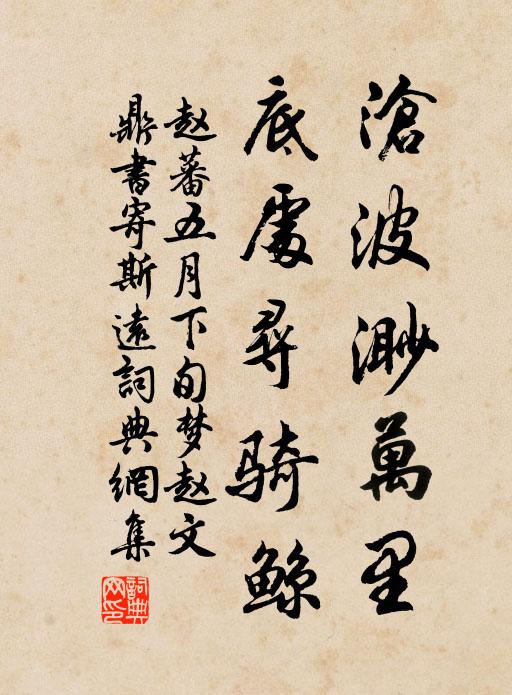 滄波渺萬里
底處尋騎鯨
赵蕃五月下旬梦赵文
鼎書寄斯遠詞典網集
詞典
网印